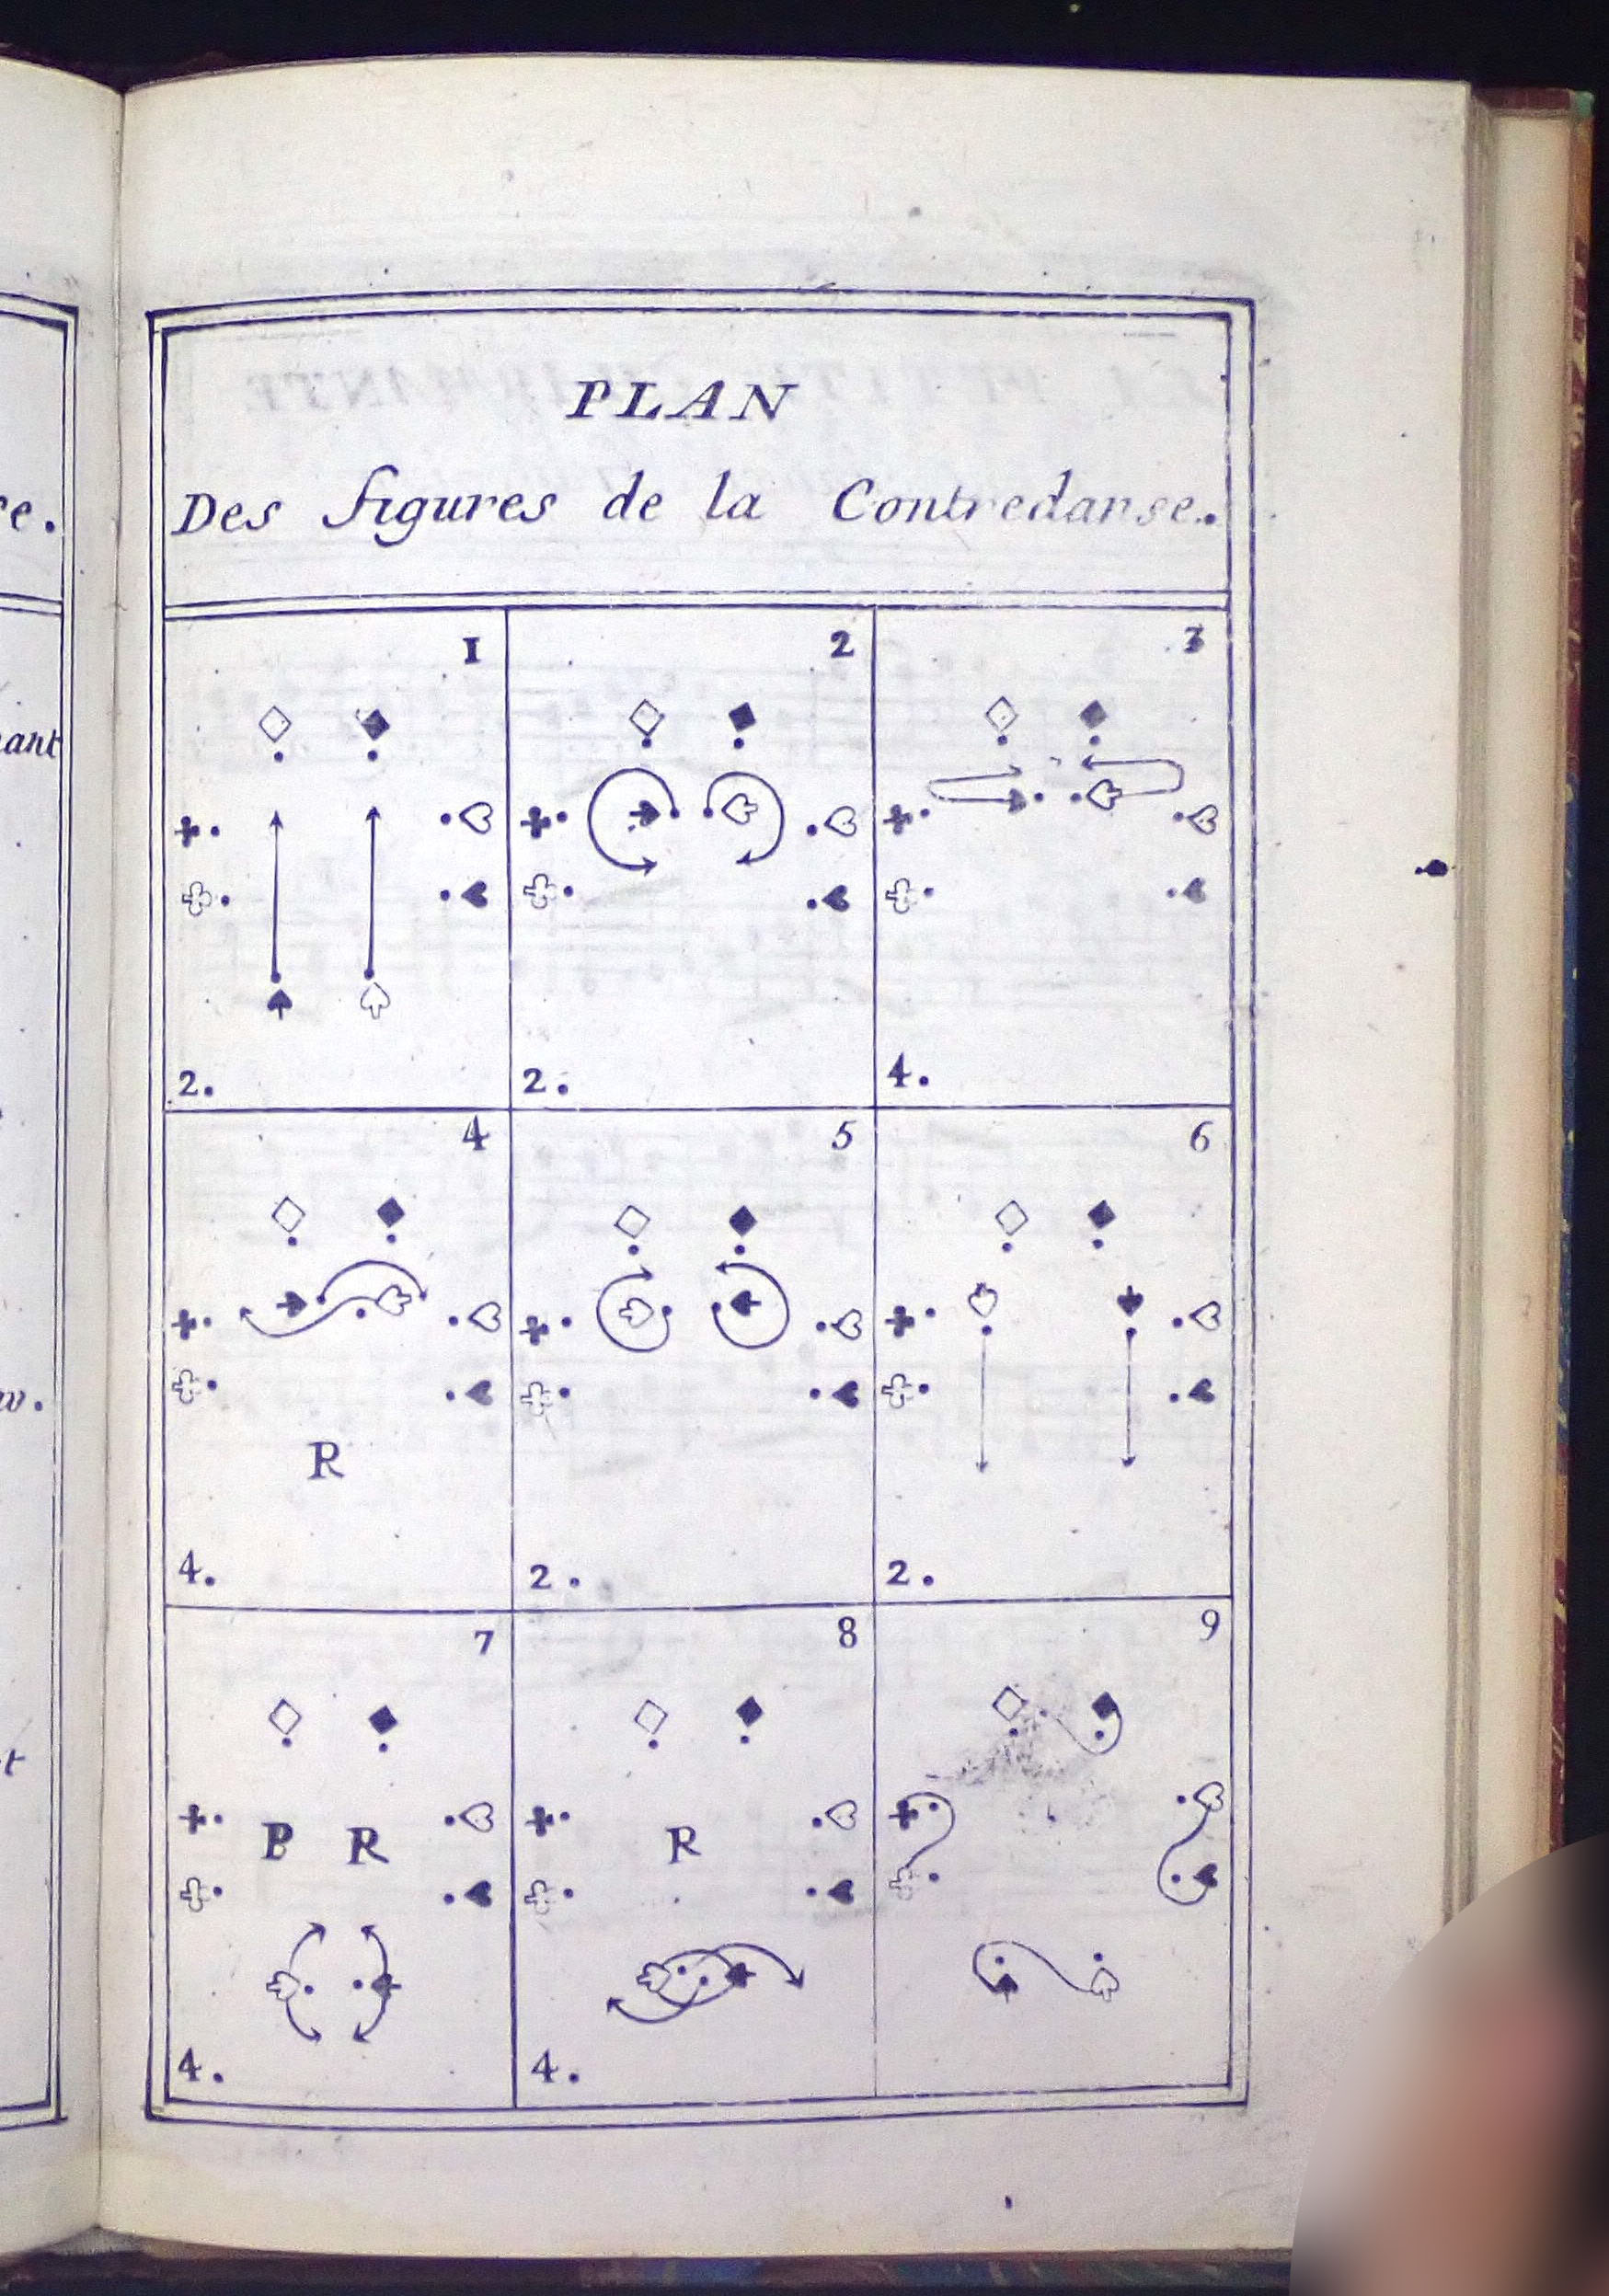 PLAN
re. Des figures de la Contredanse.
1 2 3
nant
2. 2. 4.
4 5 6
w.
R
4. 2. 2.
7 8 9
t
P R R
4. 4.